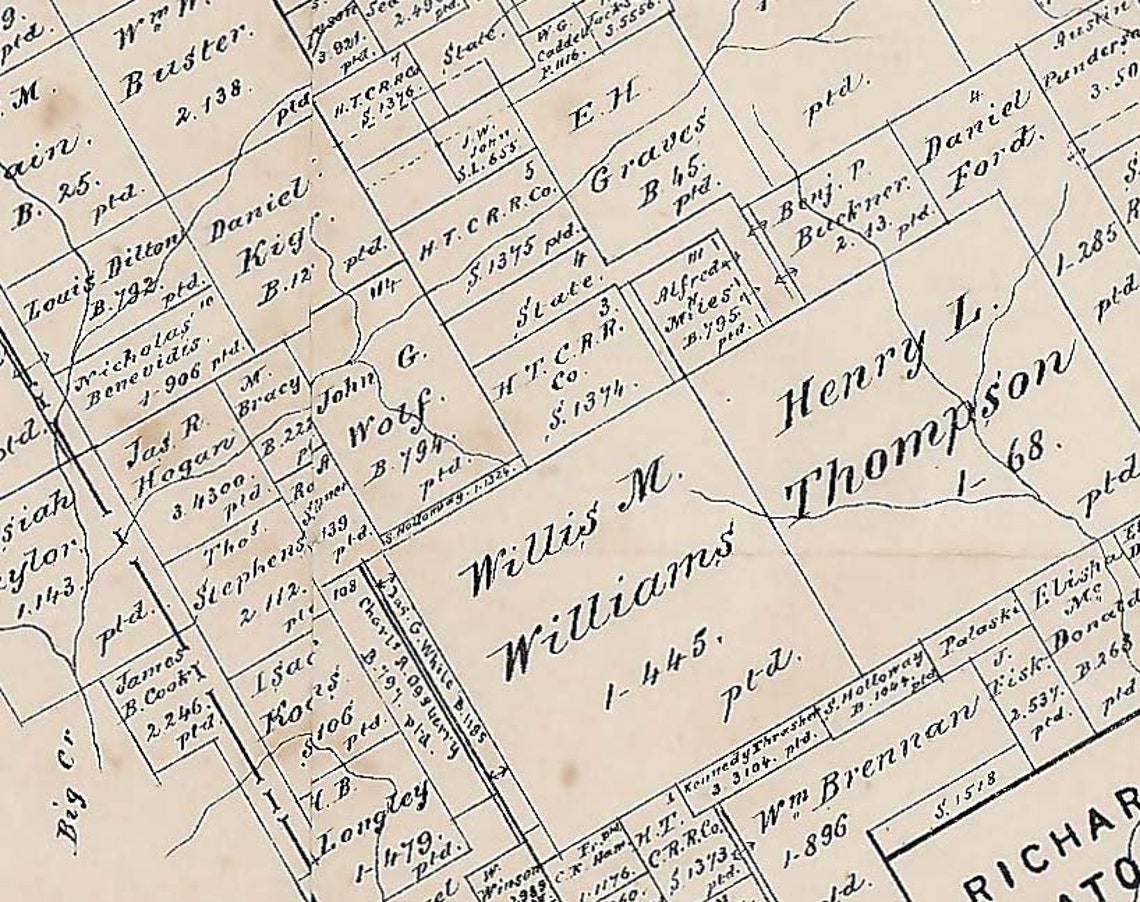 ptd.
Wm W.
Buster.
2.138.
ptd.
3.921.
ptd.
State.
W.G.
Caddell
P.1116.
S.5556.
7
H.T.C.R.R.Co.
S.1376.
J.W.
John
S.L.655
E.H.
Graves
B 45.
ptd.
ptd.
4.
Daniel
Ford.
Austin
3.50
M.
ain.
B. 25.
ptd.
Daniel
B.12
ptd.
5
H.T.C.R.R.Co.
S.1375 ptd.
4
State.
3.
H.T.C.R.R.
Co.
S.1374.
Alfred
Miles
B.795.
ptd.
Benj. P.
Buckner.
2.43. ptd.
1-285
ptd.
Louis Dilton
B.792.
ptd.
Nicholas
Benevidis.
1-906 ptd.
Jas R.
Hogan
3.4300.
ptd.
M.
Bracy
B.222
John G.
Wolf.
B.794.
ptd.
S.Holloway. 1.1324.
Henry L.
Thompson
1-68.
ptd.
Willis M.
Williams
1-445.
ptd.
siah
aylor.
1.143.
ptd.
Thos.
Stephens
2 112.
139
ptd.
108
Jas. G. White B.1185
B.791. ptd.
James
B.Cook
2.246.
ptd.
Isac
S.106
ptd.
Longley
1-479.
ptd.
Big Cr
Kennedy Thrasher
3.3104. ptd.
S.Holloway
B.1044 ptd.
Pulaski
Elisha
Mc
Donald
B268
ptd.
J.
Fisk.
2.537.
ptd.
Wm Brennan
1-896
ptd.
S.1518
H.T.
C.R.R.Co.
S 1373
ptd.
C.K Ham.
1.1176.
W.
Winson
RICHAR
ATO